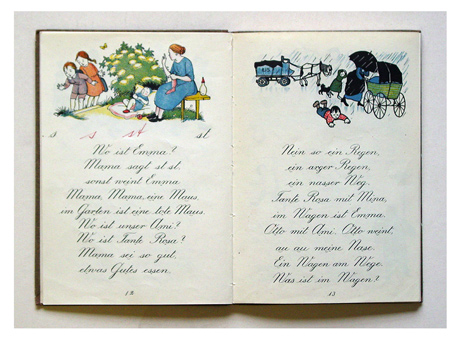 s s st st
Wo ist Emma?
Mama sagt st st,
sonst weint Emma.
Mama, Mama, eine Maus,
im Garten ist eine tote Maus.
Wo ist unser Ami?
Wo ist Tante Rosa?
Mama sei so gut,
etwas Gutes essen.
12
Nein so ein Regen,
ein arger Regen,
ein nasser Weg.
Tante Rosa mit Mina,
im Wagen ist Emma.
Otto mit Ami. Otto weint,
au au meine Nase.
Ein Wagen am Wege.
Was ist im Wagen?
13